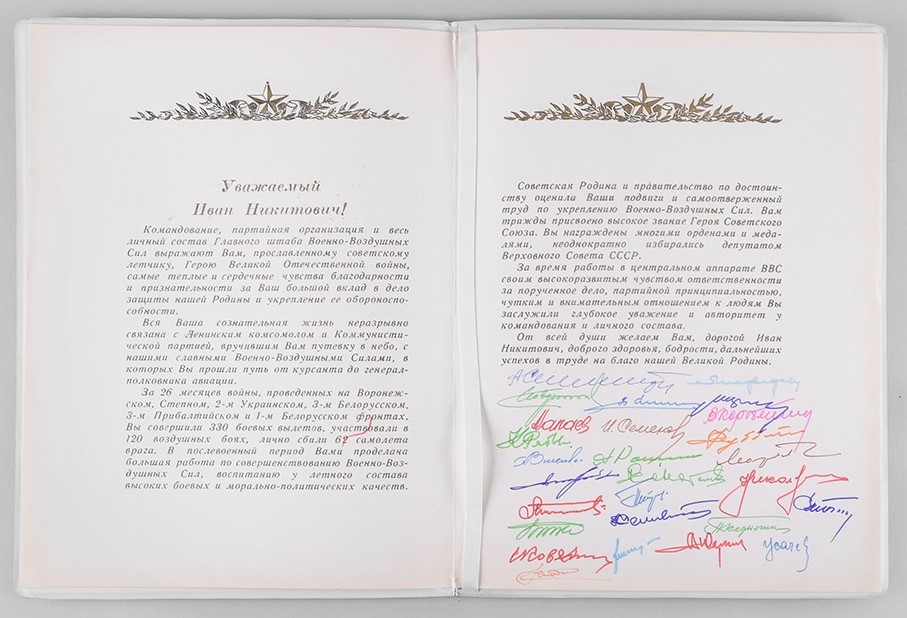 Уважаемый
Иван Никитович!
Командование, партийная организация и весь
личный состав Главного штаба Военно-Воздушных
Сил выражают Вам, прославленному советскому
летчику, Герою Великой Отечественной войны,
самые теплые и сердечные чувства благодарности
и признательности за Ваш большой вклад в дело
защиты нашей Родины и укрепление ее обороноспо-
собности.
Вся Ваша сознательная жизнь неразрывно
связана с Ленинским комсомолом и Коммунисти-
ческой партией, вручившим Вам путевку в небо, с
нашими славными Военно-Воздушными Силами, в
которых Вы прошли путь от курсанта до генерал-
полковника авиации.
За 26 месяцев войны, проведенных на Воронеж-
ском, Степном, 2-м Украинском, 3-м Белорусском,
3-м Прибалтийском и 1-м Белорусском фронтах,
Вы совершили 330 боевых вылетов, участвовали в
120 воздушных боях, лично сбили 62 самолета
врага. В послевоенный период Вами проделана
большая работа по совершенствованию Военно-Воз-
душных Сил, воспитанию у летного состава
высоких боевых и морально-политических качеств.
Советская Родина и правительство по достоин-
ству оценили Ваши подвиги и самоотверженный
труд по укреплению Военно-Воздушных Сил. Вам
трижды присвоено высокое звание Героя Советского
Союза. Вы награждены многими орденами и меда-
лями, неоднократно избирались депутатом
Верховного Совета СССР.
За время работы в центральном аппарате ВВС
своим высокоразвитым чувством ответственности
за порученное дело, партийной принципиальностью,
чутким и внимательным отношением к людям Вы
заслужили глубокое уважение и авторитет у
командования и личного состава.
От всей души желаем Вам, дорогой Иван
Никитович, доброго здоровья, бодрости, дальнейших
успехов в труде на благо нашей Великой Родины.
И. Семенов
Усачев